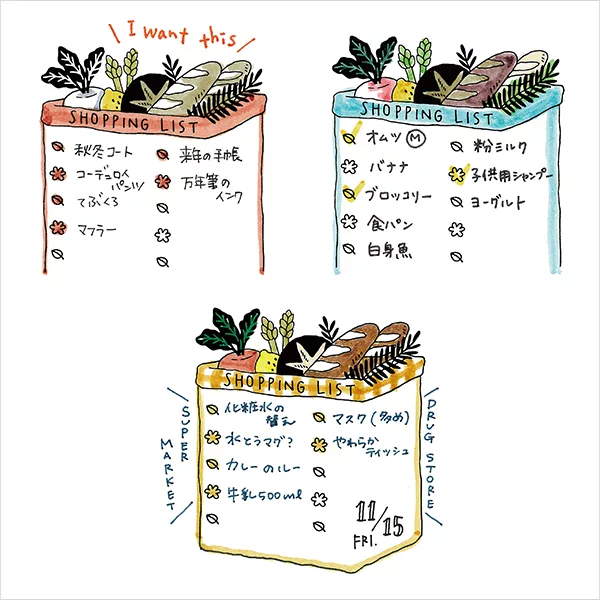 I want this
SHOPPING LIST
秋冬コート
コーデュロイ
パンツ
てぶくろ
マフラー
来年の手帳
万年筆の
インク
SHOPPING LIST
オムツ Ⓜ
バナナ
ブロッコリー
食パン
白身魚
粉ミルク
子供用シャンプー
ヨーグルト
SHOPPING LIST
SUPER
MARKET
化粧水の
替え
水とうマグ?
カレーのルー
牛乳500ml
マスク(多め)
やわらか
ティッシュ
DRUG STORE
11/15
FRI.